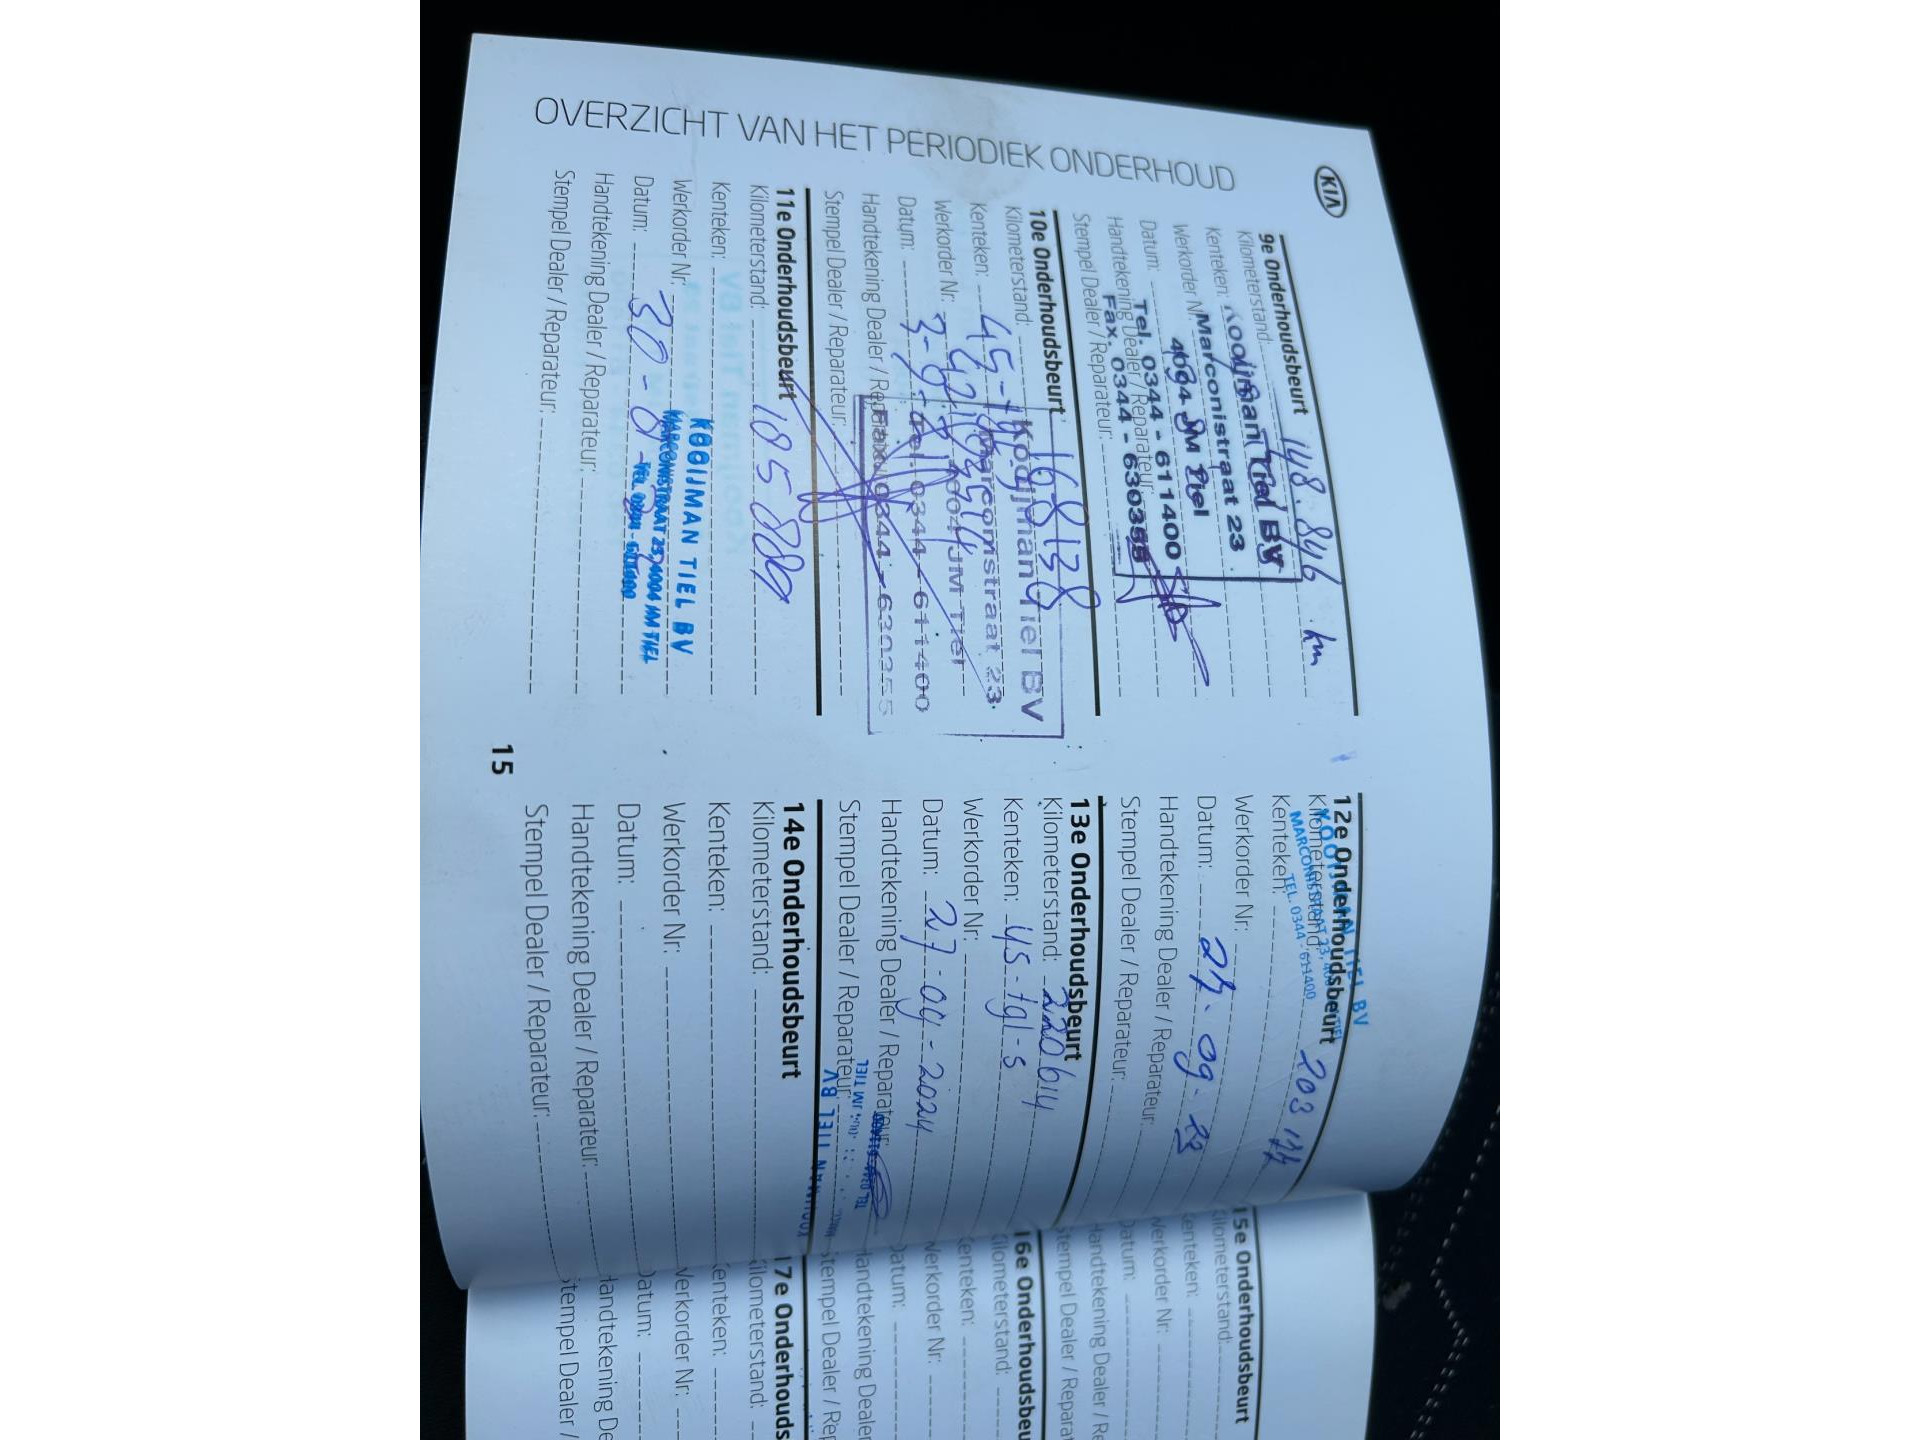 KIA
OVERZICHT VAN HET PERIODIEK ONDERHOUD
9e Onderhoudsbeurt
Kilometerstand: 148.846 km
Kenteken:
Kooijman Tiel BV
Werkorder Nr:
Marconistraat 23
4004 JM Tiel
Datum:
Tel. 0344 - 611400
Handtekening Dealer / Reparateur:
Fax. 0344 - 630355
Stempel Dealer / Reparateur:
10e Onderhoudsbeurt
Kilometerstand: 168138
Kooijman Tiel BV
Kenteken: 45-
Marconistraat 23
Werkorder Nr:
4004 JM Tiel
Datum:
Tel. 0344 - 611400
Handtekening Dealer / Reparateur:
Fax. 0344 - 630355
Stempel Dealer / Reparateur:
11e Onderhoudsbeurt
Kilometerstand:
Kenteken:
KOOIJMAN TIEL BV
Werkorder Nr:
MARCONISTRAAT 23, 4004 JM TIEL
Datum: 30-8-
TEL. 0344 - 611400
Handtekening Dealer / Reparateur:
Stempel Dealer / Reparateur:
15
12e Onderhoudsbeurt
Kilometerstand:
KOOIJMAN TIEL BV
Kenteken:
MARCONISTRAAT 23, 4004 JM TIEL
TEL. 0344 - 611400
Werkorder Nr:
Datum:
Handtekening Dealer / Reparateur:
Stempel Dealer / Reparateur:
13e Onderhoudsbeurt
Kilometerstand: 220614
Kenteken: 45-tgl-s
Werkorder Nr:
Datum: 27-09-2024
Handtekening Dealer / Reparateur:
Stempel Dealer / Reparateur:
JM TIEL
KOOIJMAN TIEL BV
14e Onderhoudsbeurt
Kilometerstand:
Kenteken:
Werkorder Nr:
Datum:
Handtekening Dealer / Reparateur:
Stempel Dealer / Reparateur:
15e Onderhoudsbeurt
Kilometerstand:
Kenteken:
Werkorder Nr:
Datum:
Handtekening Dealer / Re
Stempel Dealer / Reparat
16e Onderhoudsbeu
Kilometerstand:
Kenteken:
Werkorder Nr:
Datum:
Handtekening Dealer
Stempel Dealer / Rep
17e Onderhouds
Kilometerstand:
Kenteken:
Werkorder Nr:
Datum:
Handtekening De
Stempel Dealer /